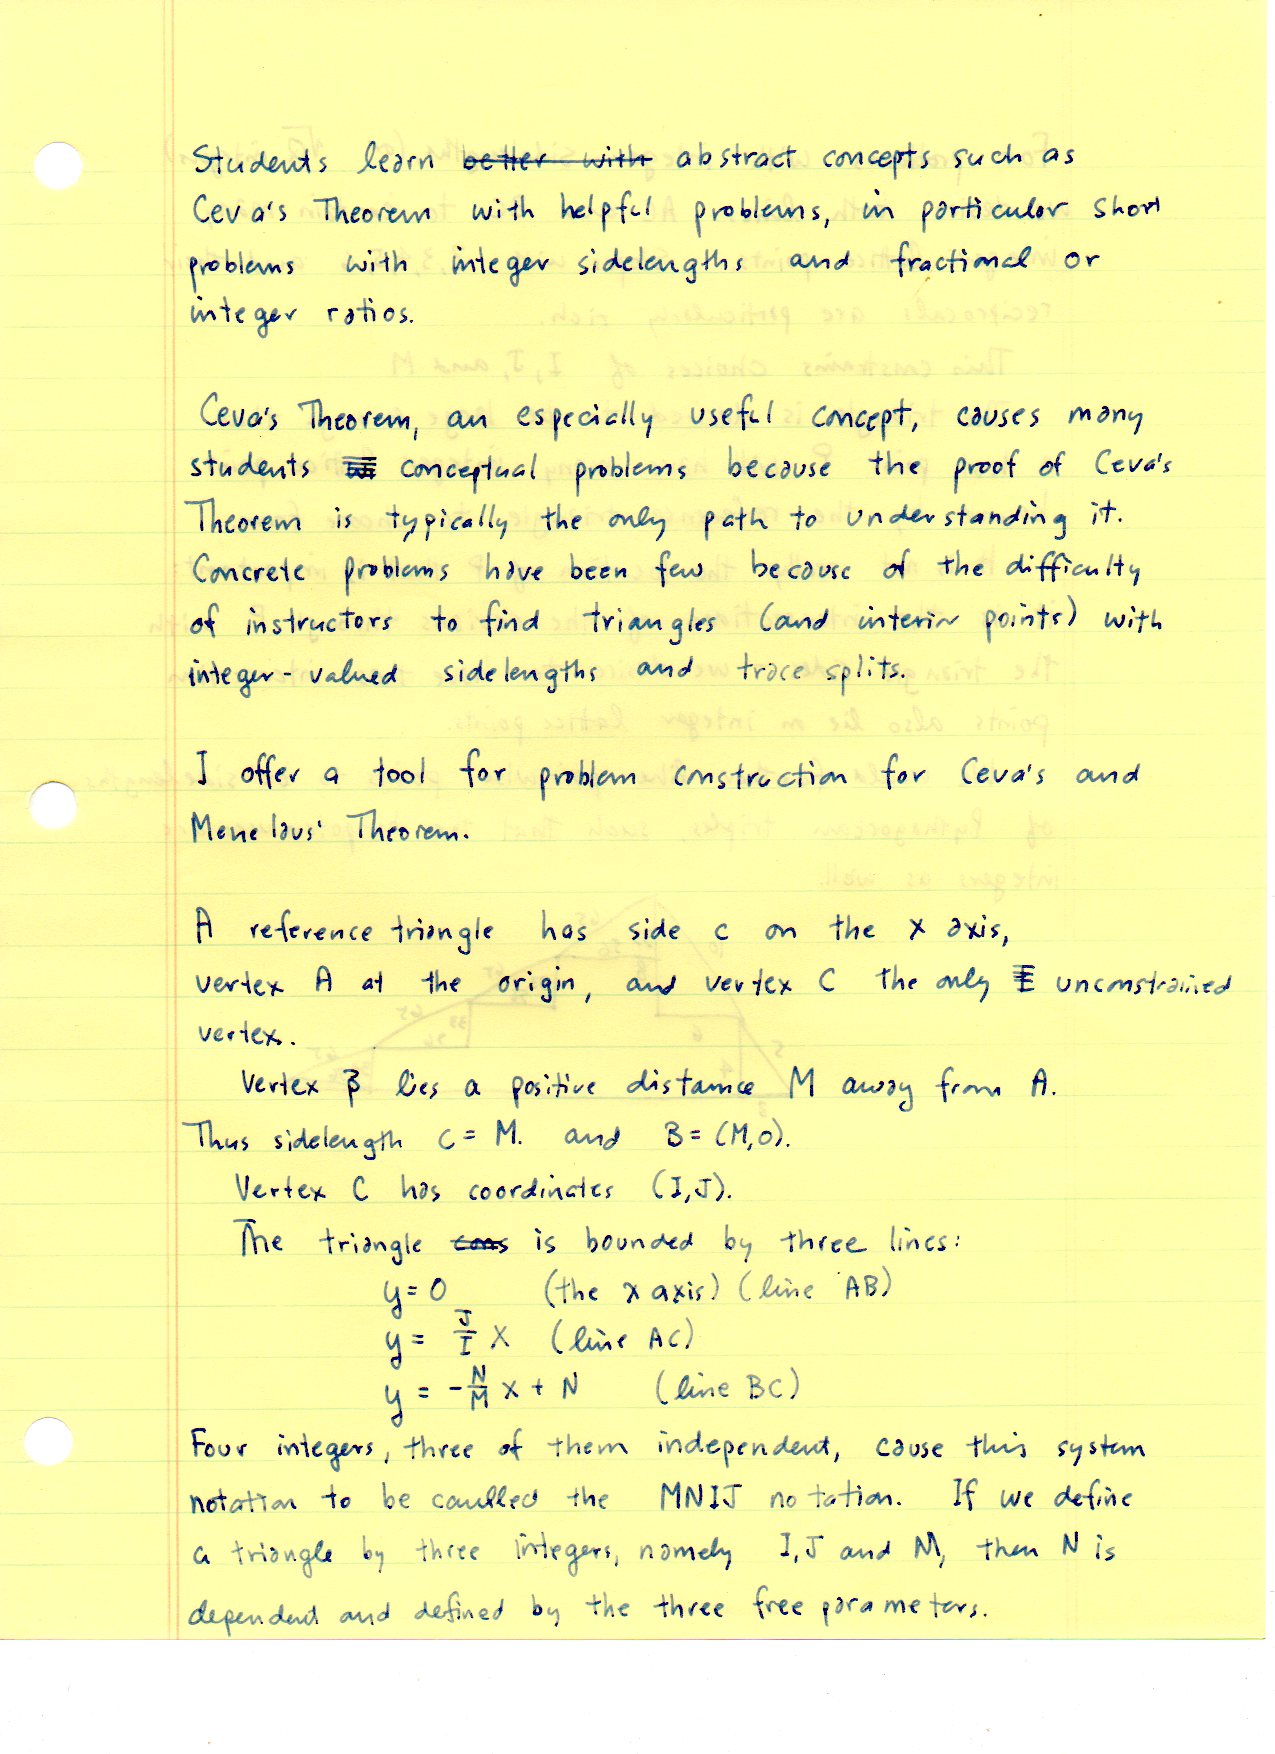 Students learn better with abstract concepts such as
Ceva's Theorem with helpful problems, in particular short
problems with integer sidelengths and fractional or
integer ratios.
Ceva's Theorem, an especially useful concept, causes many
students conceptual problems because the proof of Ceva's
Theorem is typically the only path to understanding it.
Concrete problems have been few because of the difficulty
of instructors to find triangles (and interior points) with
integer-valued sidelengths and trace splits.
I offer a tool for problem construction for Ceva's and
Menelaus' Theorem.
A reference triangle has side c on the x axis,
vertex A at the origin, and vertex C the only unconstrained
vertex.
Vertex B lies a positive distance M away from A.
Thus sidelength c = M. and B = (M,0).
Vertex C has coordinates (I,J).
The triangle cons is bounded by three lines:
y = 0 (the x axis) (line AB)
y = J/I x (line AC)
y = -N/M x + N (line BC)
Four integers, three of them independent, cause this system
notation to be caulled the MNIJ notation. If we define
a triangle by three integers, namely I, J and M, then N is
dependent and defined by the three free parameters.